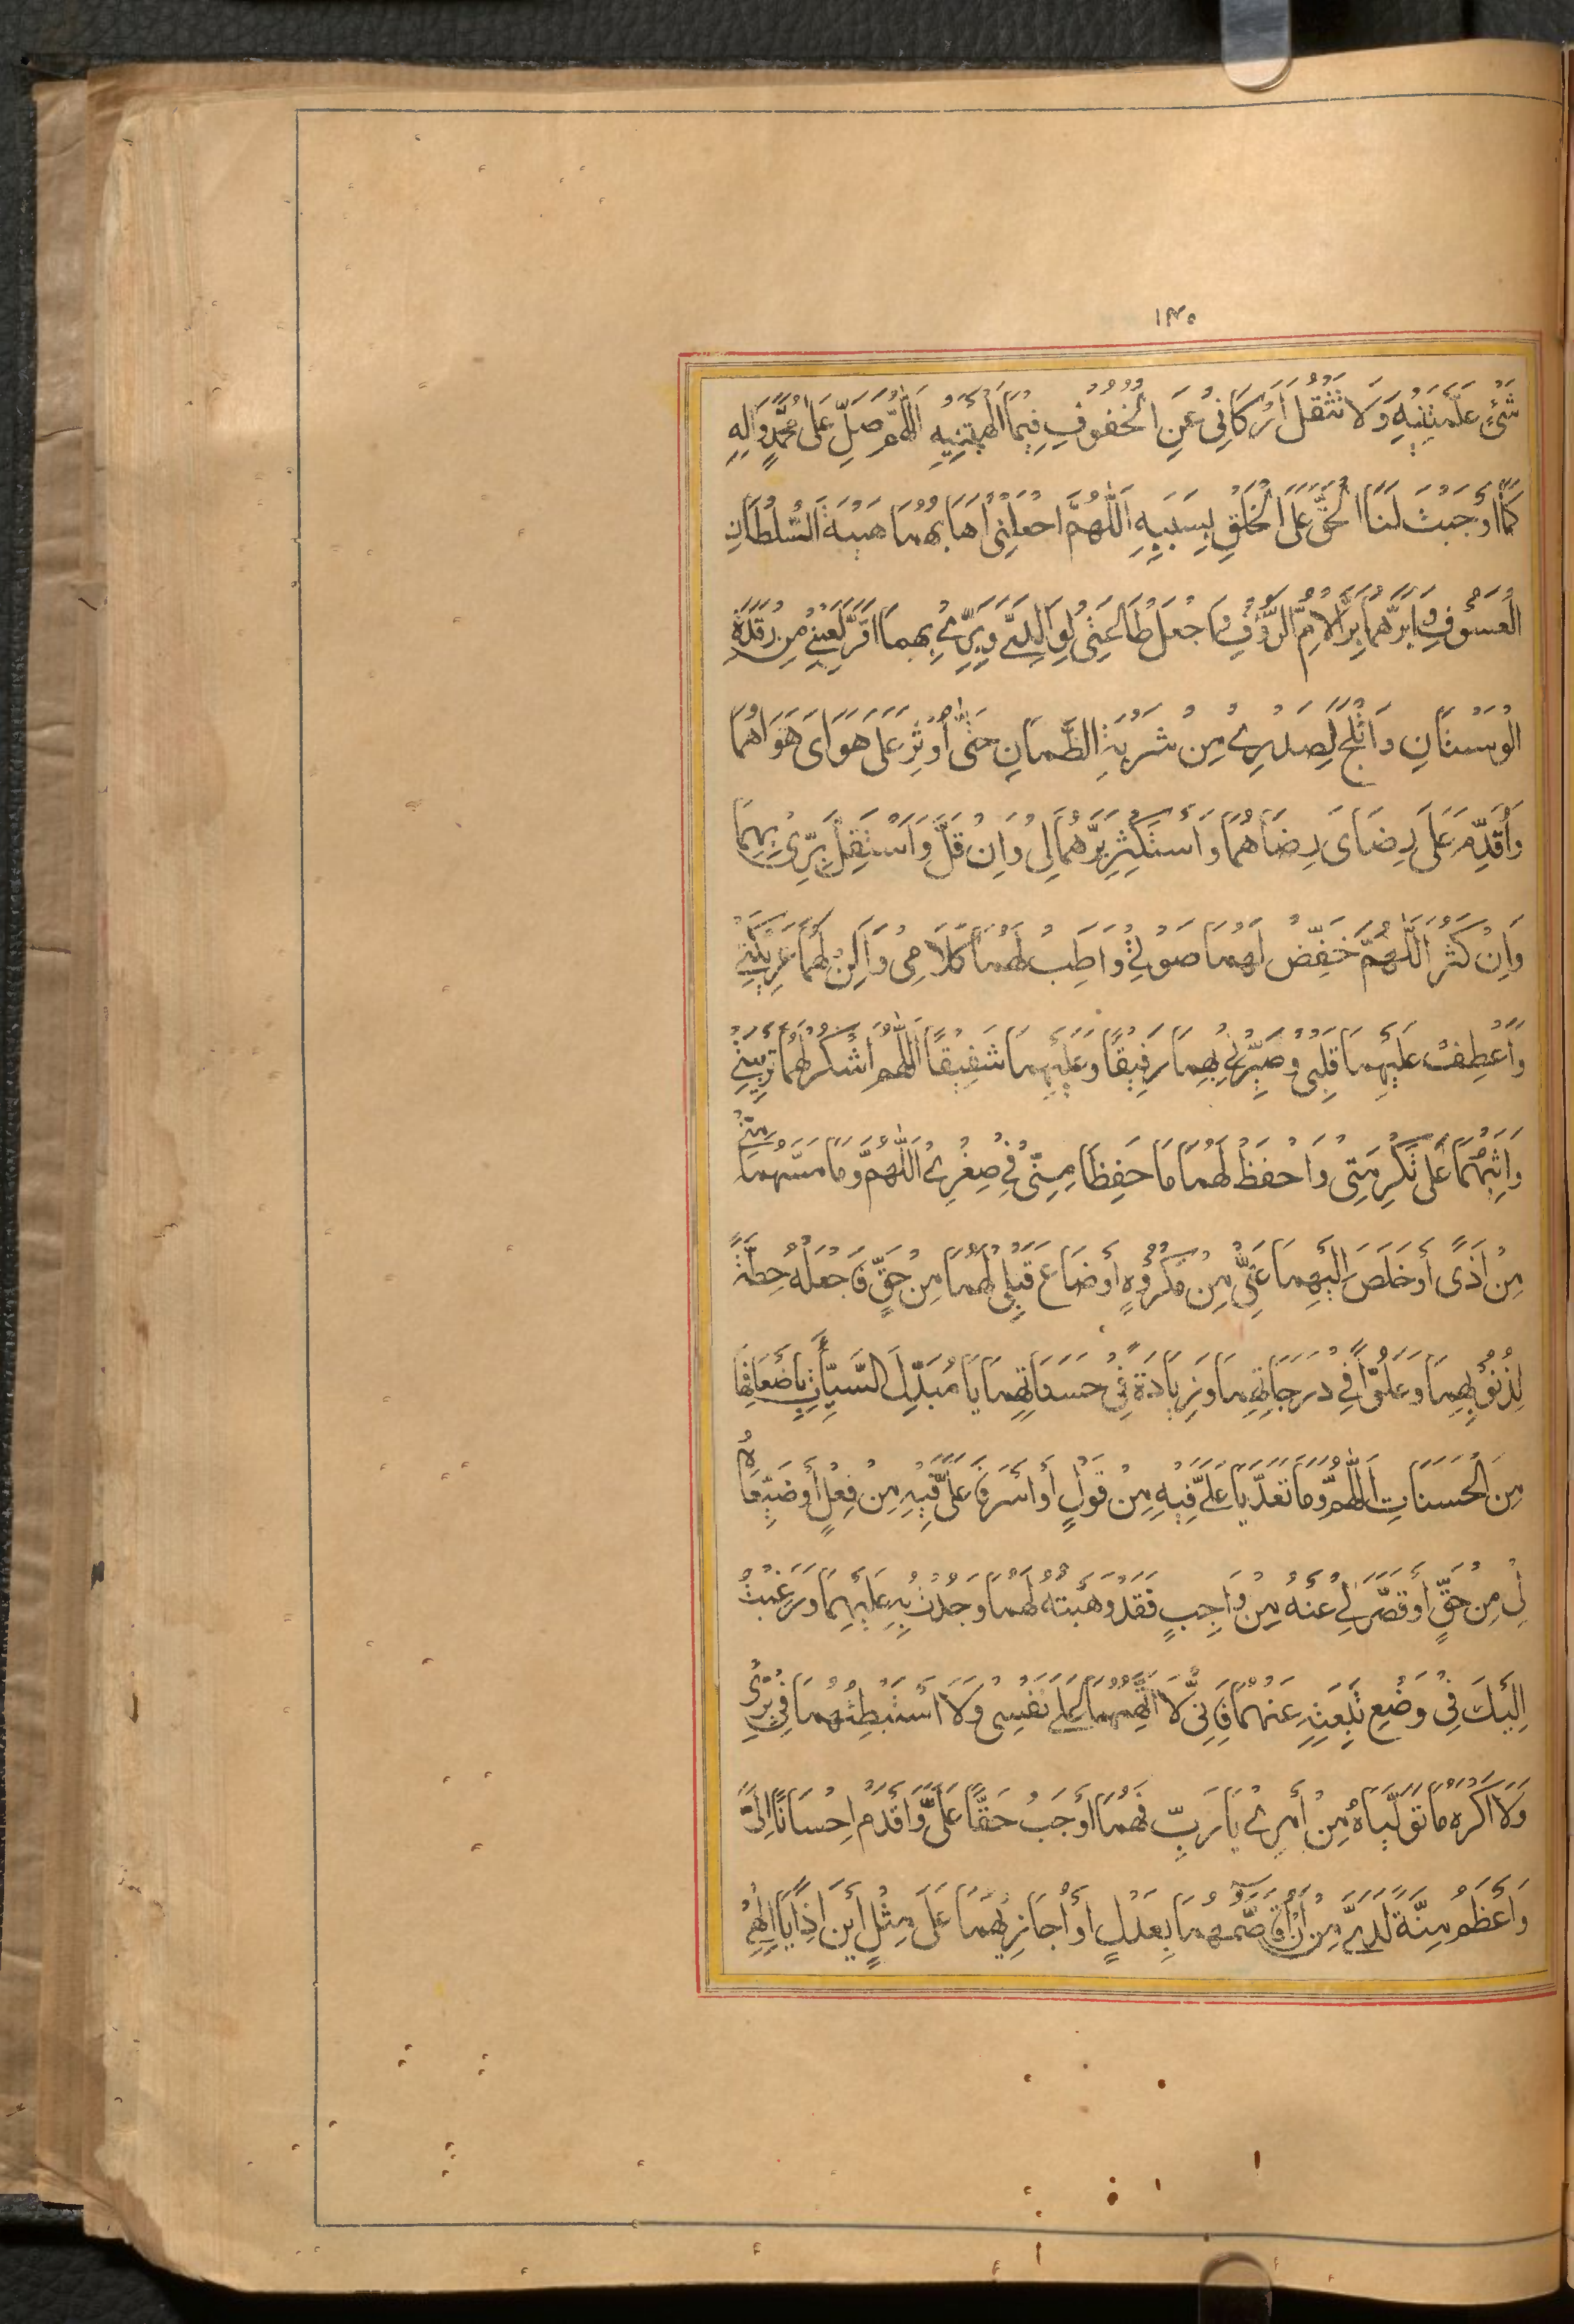 ١٣٥
شَيْءٍ عَلَّمْتَنِيهِ وَلَا تَثْقُلَ أَرْكَانِي عَنِ الْخُفُوفِ فِيمَا أَلْهَمْتَنِيهِ اَللّٰهُمَّ صَلِّ عَلَى مُحَمَّدٍ وَآلِهِ
كَمَا أَوْجَبْتَ لَنَا الْحَقَّ عَلَى الْخَلْقِ بِسَبَبِهِ اَللّٰهُمَّ اجْعَلْنِي أَهَابُهُمَا هَيْبَةَ السُّلْطَانِ
الْعَسُوفِ وَأَبَرُّهُمَا بِرَّ الْأُمِّ الرَّؤُفِ وَاجْعَلْ طَاعَتِي لِوَالِدَيَّ وَبِرِّي بِهِمَا أَقَرَّ لِعَيْنِي مِنْ رَقْدَةِ
الْوَسْنَانِ وَأَثْلَجَ لِصَدْرِي مِنْ شَرْبَةِ الظَّمْاٰنِ حَتَّى أُوثِرَ عَلَى هَوَايَ هَوَاهُمَا
وَأُقَدِّمَ عَلَى رِضَايَ رِضَاهُمَا وَأَسْتَكْثِرَ بِرَّهُمَا لِي وَاِنْ قَلَّ وَأَسْتَقِلَّ بِرِّي بِهِمَا
وَاِنْ كَثُرَ اَللّٰهُمَّ خَفِّضْ لَهُمَا صَوْتِي وَأَطِبْ لَهُمَا كَلَامِي وَأَلِنْ لَهُمَا عَرِيكَتِي
وَاعْطِفْ عَلَيْهِمَا قَلْبِي وَصَيِّرْنِي بِهِمَا رَفِيقًا وَعَلَيْهِمَا شَفِيقًا اَللّٰهُمَّ اشْكُرْ لَهُمَا تَرْبِيَتِي
وَأَثِبْهُمَا عَلَى تَكْرِمَتِي وَاحْفَظْ لَهُمَا مَا حَفِظَا مِنِّي فِي صِغَرِي اَللّٰهُمَّ وَمَا مَسَّهُمَا مِنِّي
مِنْ أَذًى أَوْ خَلَصَ اِلَيْهِمَا عَنِّي مِنْ مَكْرُوهٍ أَوْ ضَاعَ قِبَلِي لَهُمَا مِنْ حَقٍّ فَاجْعَلْهُ حِطَّةً
لِذُنُوبِهِمَا وَعُلُوًّا فِي دَرَجَاتِهِمَا وَزِيَادَةً فِي حَسَنَاتِهِمَا يَا مُبَدِّلَ السَّيِّئَاتِ بِأَضْعَافِهَا
مِنَ الْحَسَنَاتِ اَللّٰهُمَّ وَمَا تَعَدَّيَا عَلَيَّ فِيهِ مِنْ قَوْلٍ أَوْ أَسْرَفَا عَلَيَّ فِيهِ مِنْ فِعْلٍ أَوْ ضَيَّعَاهُ
لِي مِنْ حَقٍّ أَوْ قَصَّرَا لِي عَنْهُ مِنْ وَاجِبٍ فَقَدْ وَهَبْتُهُ لَهُمَا وَجُدْتُ بِهِ عَلَيْهِمَا وَرَغِبْتُ
اِلَيْكَ فِي وَضْعِ تَبِعَتِهِ عَنْهُمَا فَاِنِّي لَا أَتَّهِمُهُمَا عَلَى نَفْسِي وَلَا أَسْتَبْطِئُهُمَا فِي بِرِّي
وَلَا أَكْرَهُ مَا تَوَلَّيَاهُ مِنْ أَمْرِي يَا رَبِّ فَهُمَا أَوْجَبُ حَقًّا عَلَيَّ وَأَقْدَمُ اِحْسَانًا اِلَيَّ
وَأَعْظَمُ مِنَّةً لَدَيَّ مِنْ أَنْ أُقَاصَّهُمَا بِعَدْلٍ أَوْ أُجَازِيَهُمَا عَلَى مِثْلٍ أَيْنَ اِذًا يَا اِلٰهِي